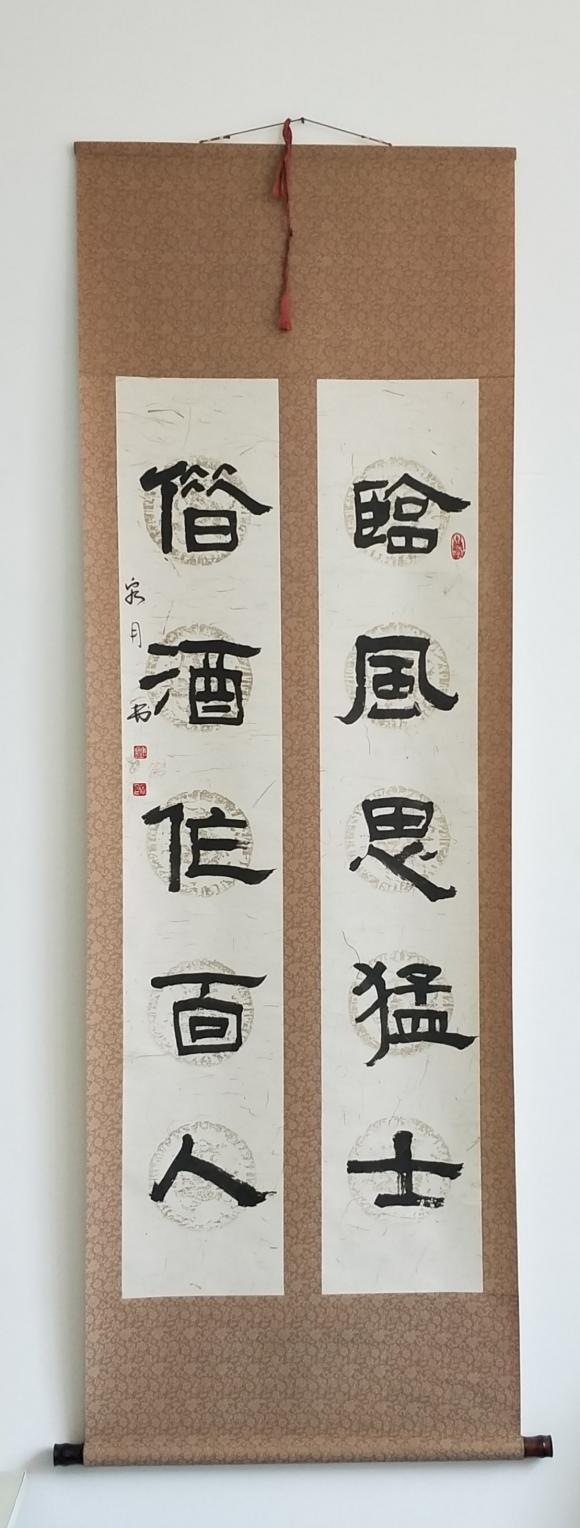 臨風思猛士
借酒作百人
月书